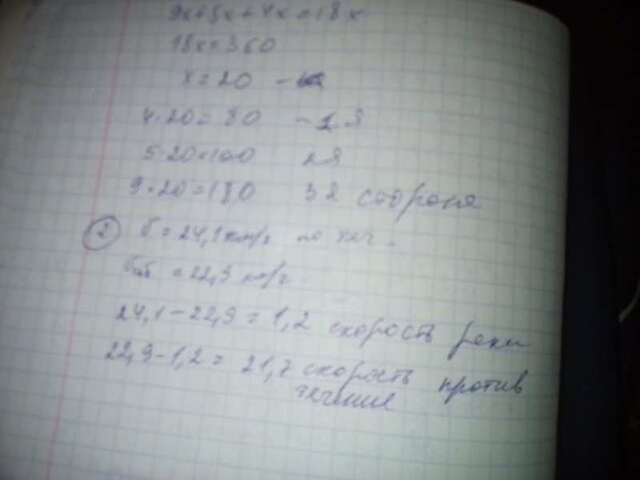 9x+5x+4x=18x
18x=360
x=20 -
4·20=80 -1 я
5·20=100 2 я
9·20=180 3 я сторона
2 = 24,1 км/ч по теч.
= 22,9 км/ч
24,1-22,9=1,2 скорость реки
22,9-1,2= 21,7 скорость против
течение